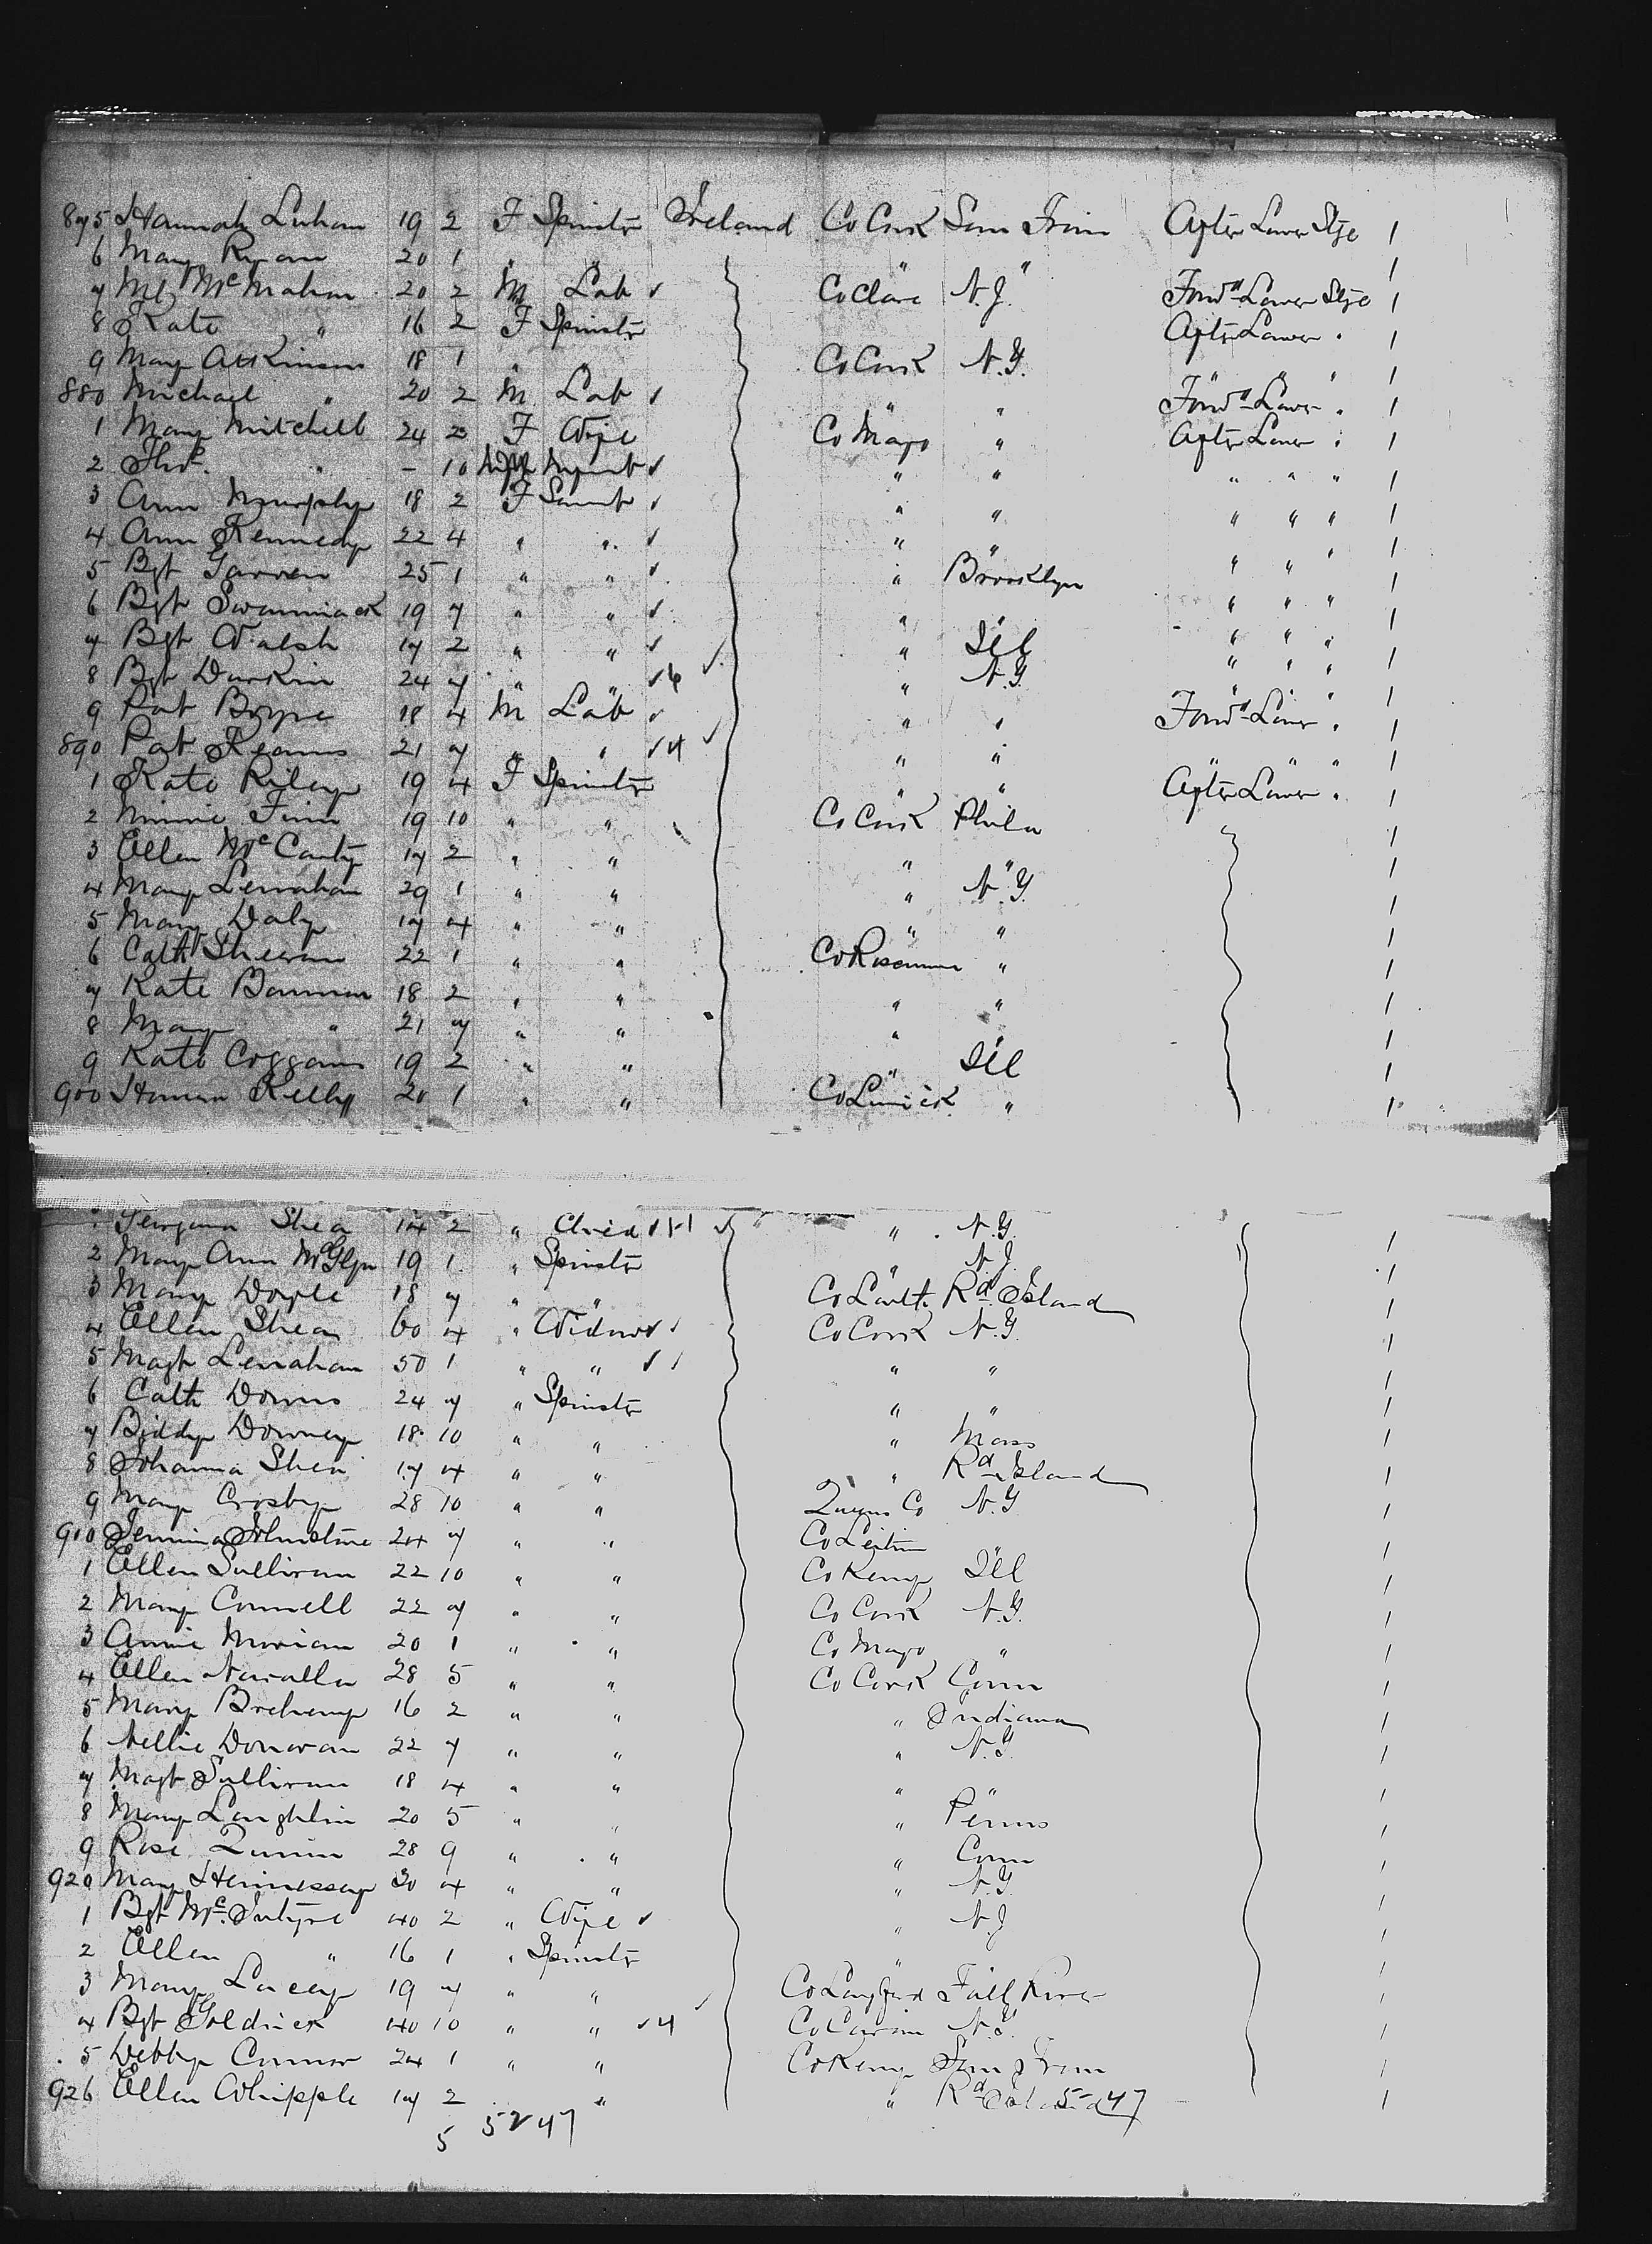 875 Hannah Linham 19 2 F Spinstr Ireland Co Cork San Fran After Lower Stge 1
6 Mary Ryan 20 1 " " " " 1
7 Ml McMahon 20 2 M Lab ✓ Co Clare N.J. Forwd Lower Stge 1
8 Kate " 16 2 F Spinstr After Lower " 1
9 Mary Atkinson 18 1 " Co Cork N.Y. " " " 1
880 Michael " 20 2 M Lab ✓ " " Forwd Lower " 1
1 Mary Mitchell 24 2 F Wife Co Mayo " After Lower " 1
2 Thos. " - 10 Infant ✓ " " " " " 1
3 Ann Murphy 18 2 F Servt ✓ " " " " " 1
4 Ann Kennedy 22 4 " " ✓ " " 1
5 Bgt Garren 25 1 " " ✓ " Brooklyn " " " 1
6 Bgt Swannick 19 7 " " ✓ " " " " " 1
7 Bgt Walsh 17 2 " " ✓ " Ill " " " 1
8 Bgt Durkin 24 7 " " ✓6 ✓ " N.Y. " " " 1
9 Pat Boyre 18 4 M Lab ✓ " " Forwd Lower " 1
890 Pat Kearns 21 7 " " ✓4 ✓ " " " " " 1
1 Kate Riley 19 4 F Spinstr " " After Lower " 1
2 Minnie Finn 19 10 " " Co Cork Phila 1
3 Ellen McCarty 17 2 " " " " 1
4 Mary Lenahan 29 1 " " " N.Y. 1
5 Mary Daly 17 4 " " " " 1
6 Cath Sheeran 22 1 " " Co Roscommn " 1
7 Kate Bannon 18 2 " " " " 1
8 Mary " 21 7 " " " " 1
9 Kate Coggans 19 2 " " " Ill 1
900 Honora Kelly 20 1 " " Co Limrick " 1
Shea 14 2 " ✓ " N.Y. 1
2 Mary Ann McGlyn 19 1 " Spinstr " N.J. 1
3 Mary Doyle 18 7 " " Co Louth Rd Island 1
4 Ellen Shea 60 4 " Widow ✓ Co Cork N.Y. 1
5 Magt Lenahan 50 1 " " ✓ " " 1
6 Cath Downs 24 7 " Spinstr " " 1
7 Biddy Downey 18 10 " " " Mass 1
8 Johanna Shea 17 4 " " " Rd Island 1
9 Mary Crosby 28 10 " " Queens Co N.Y. 1
910 Jemima Johnstone 24 7 " " Co Leitrim " 1
1 Ellen Sullivan 22 10 " " Co Kerry Ill 1
2 Mary Connell 22 7 " " Co Cork N.Y. 1
3 Annie Moriam 20 1 " " Co Mayo " 1
4 Ellen Navalla 28 5 " " Co Cork Conn 1
5 Mary 16 2 " " " Indiana 1
6 Nellie Donovan 22 7 " " " N.Y. 1
7 Magt Sullivan 18 4 " " " " 1
8 Mary Laughlin 20 5 " " " Penns 1
9 Rose Quinn 28 9 " " " Conn 1
920 Mary Hennessey 30 4 " " " N.Y. 1
1 Bgt McIntyre 40 2 " Wife ✓ " N.J. 1
2 Ellen " 16 1 " Spinstr " " 1
3 Mary Lacey 19 7 " " Co Longford Fall River 1
4 Bgt Goldrick 40 10 " " ✓4 ✓ Co Cavan N.Y. 1
5 Debby Connor 24 1 " " Co Kerry San Fran 1
926 Ellen Whipple 17 2 " " Rd Island 5-47 1
5 5247